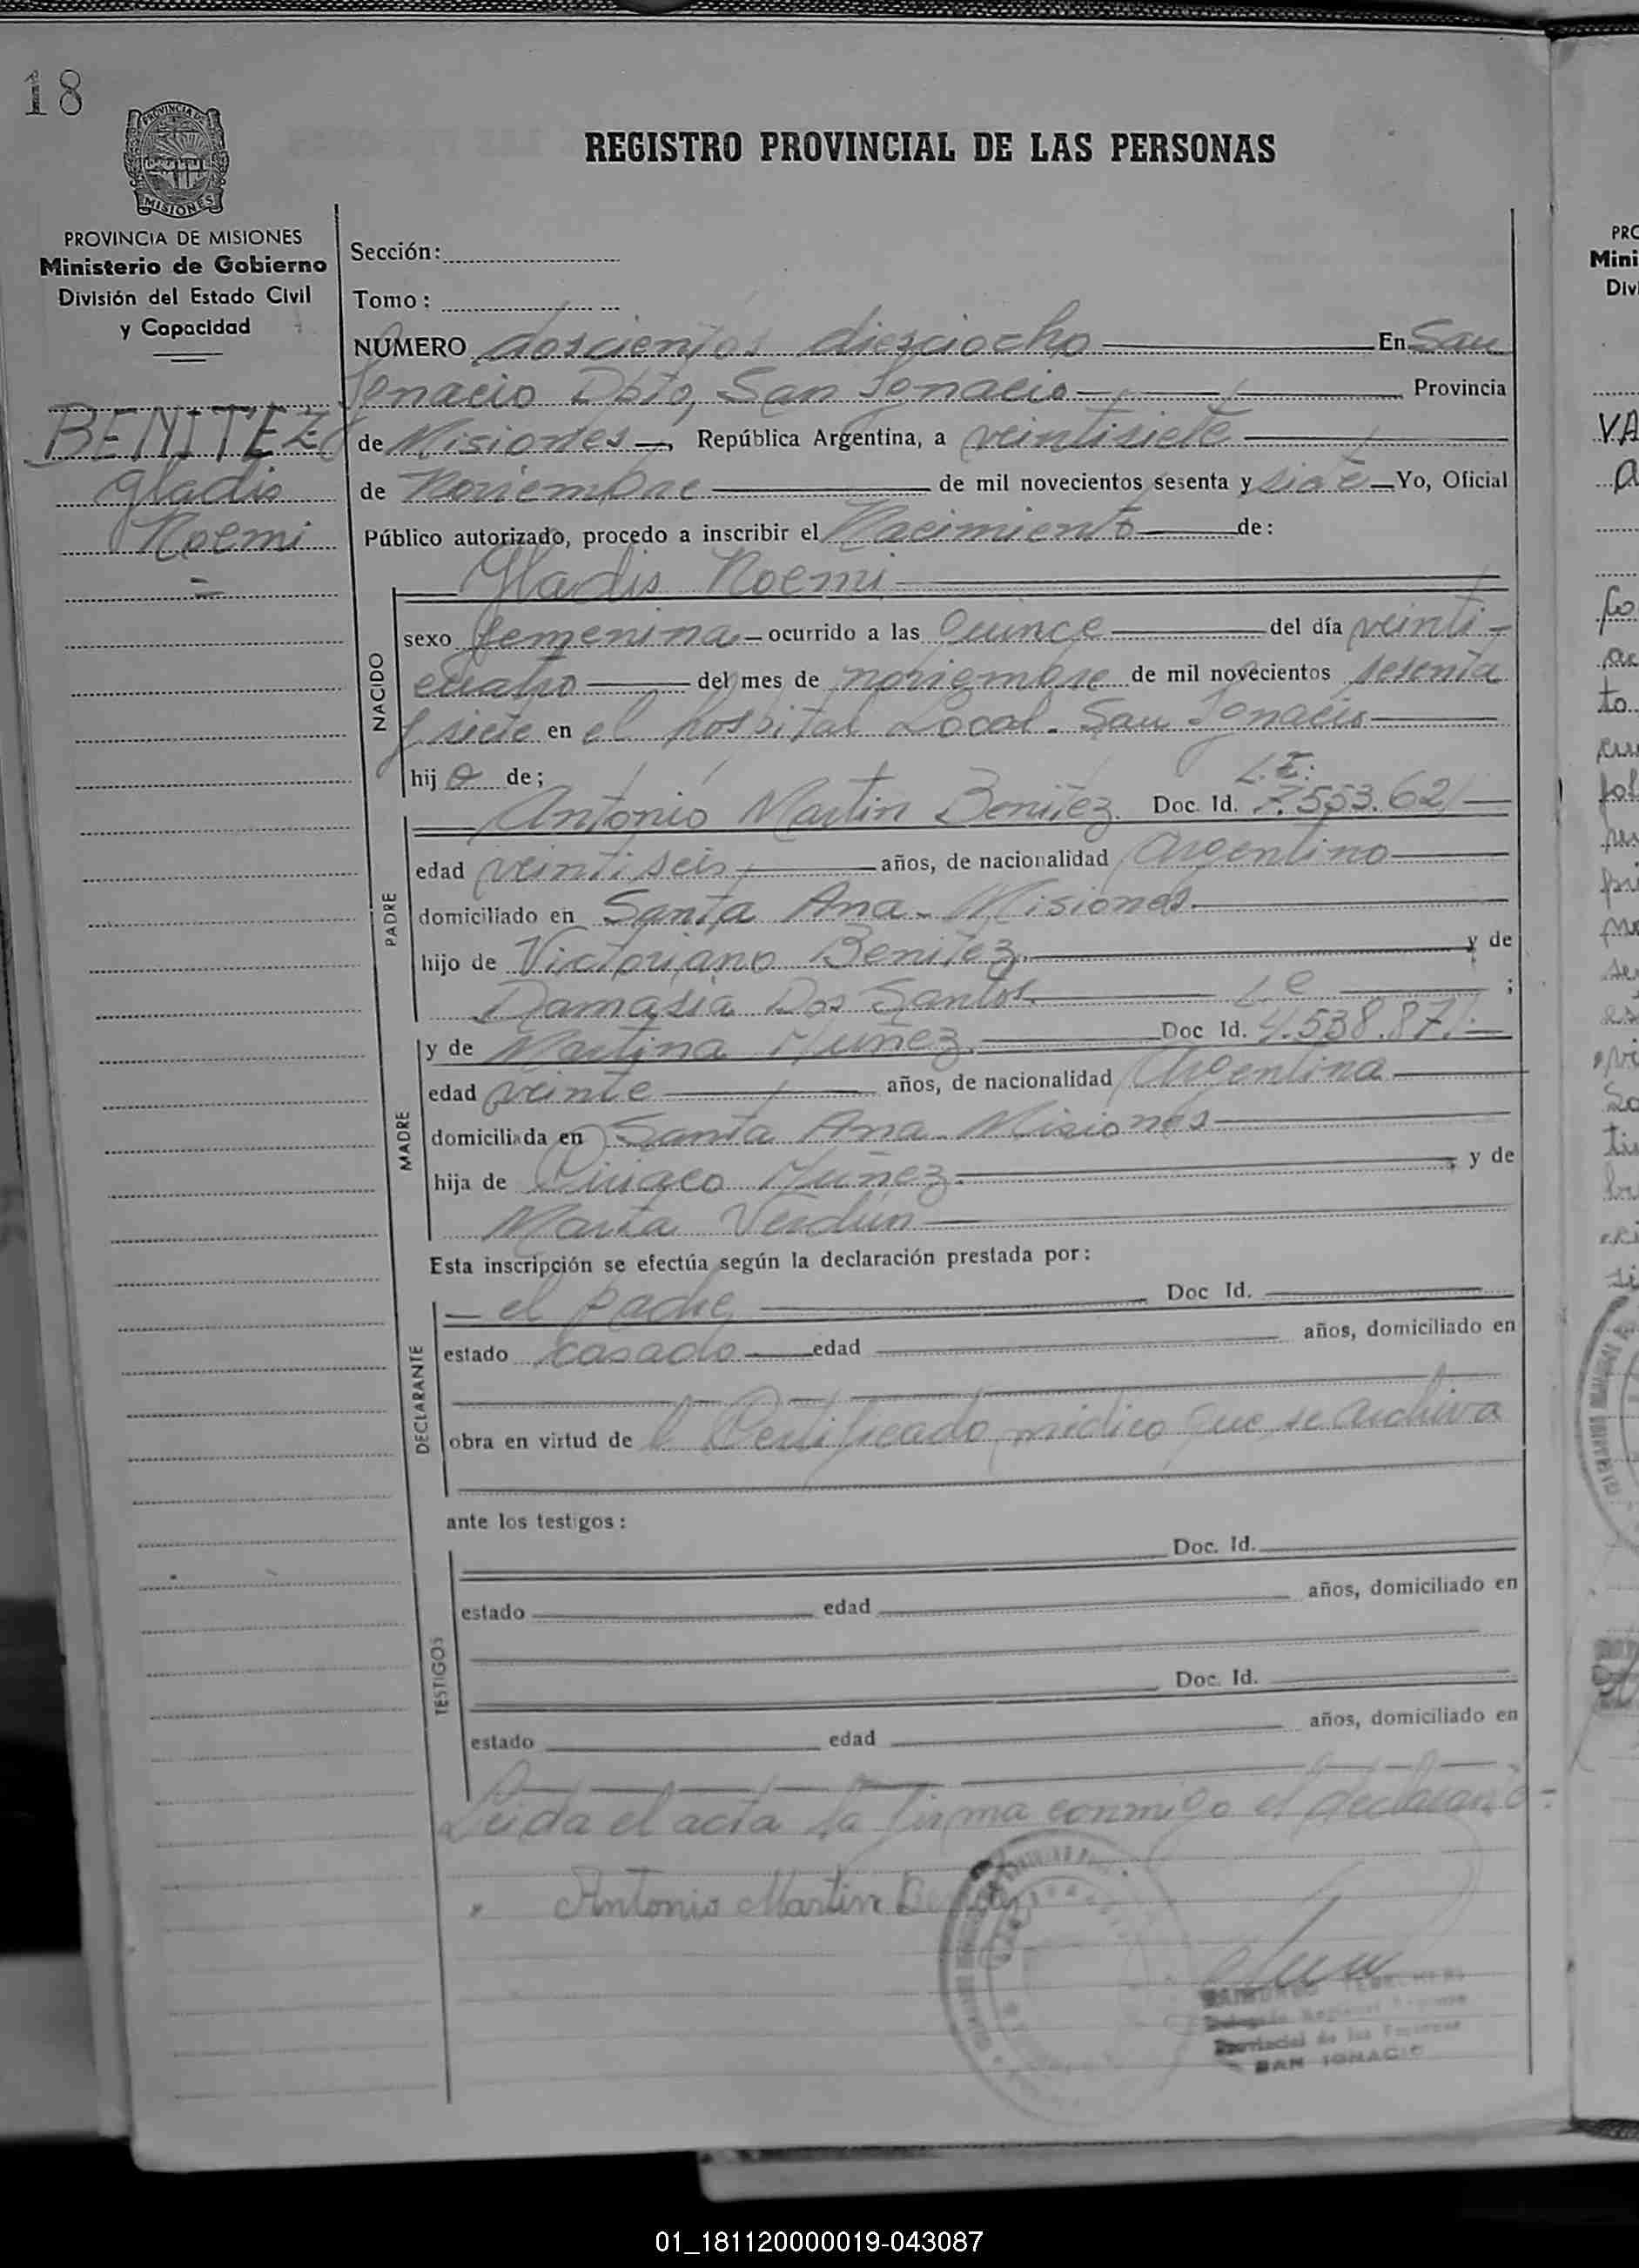 18
PROVINCIA DE
MISIONES
REGISTRO PROVINCIAL DE LAS PERSONAS
PROVINCIA DE MISIONES
Ministerio de Gobierno
División del Estado Civil
y Capacidad
BENITEZ
Gladis
Noemi
Sección:
Tomo:
NUMERO doscientos diesciocho En San
Ignacio Dpto, San Ignacio Provincia
de Misiones, República Argentina, a veintisiete
de Noviembre de mil novecientos sesenta y siete Yo, Oficial
Público autorizado, procedo a inscribir el Nacimiento de:
Gladis Noemi
NACIDO
sexo femenina ocurrido a las Quince del día veinti-
cuatro del mes de noviembre de mil novecientos sesenta
y siete en el hospital Local. San Ignacio
hija de;
L.E:
Antonio Martin Benitez. Doc. Id. 7.553.62
PADRE
edad veintiseis años, de nacionalidad Argentino
domiciliado en Santa Ana. Misiones.
hijo de Victoriano Benitez. y de
Damasia Dos Santos L.C ;
MADRE
y de Martina Muñez. Doc Id. 4.538.87
edad veinte años, de nacionalidad Argentina
domiciliada en Santa Ana. Misiones
hija de Ciriaco Muñez. y de
Maria Verdún
Esta inscripción se efectúa según la declaración prestada por:
DECLARANTE
el padre Doc Id.
estado casado edad años, domiciliado en
obra en virtud de l Certificado médico que se archiva
ante los testigos:
TESTIGOS
Doc. Id.
estado edad años, domiciliado en
Doc. Id.
estado edad años, domiciliado en
Leida el acta la firma conmigo el declarante-
Antonio Martin
Provincial de las Personas
SAN IGNACIO
PRO
Mini
Div
VA
01_181120000019-043087